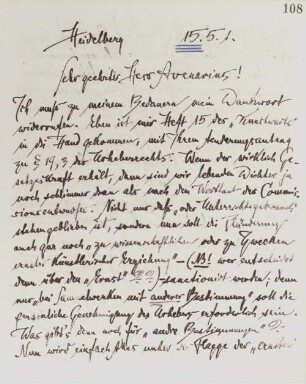 108
Heidelberg 15.5.1.
Sehr geehrter Herr Avenarius!
Ich muß zu meinem Bedauern mein Dankwort
widerrufen. Eben ist mir Heft 15 des „Kunstwarts"
in die Hand gekommen, mit Ihrem Änderungsantrag
zu § 19,3 des Urheberrechts. Wenn der wirklich Ge-
setzeskraft erhält, dann sind wir lebenden Dichter ja
noch schlimmer dran als nach dem Wortlaut des Commis-
sionsentwurfes. Nicht nur daß „oder Unterrichtsgebrauch"
stehengeblieben ist, sondern nun soll die Plünderung
auch gar noch „zu wissenschaftlichen oder zu Zwecken
ernster künstlerischer Erziehung" – (NB! wer entscheidet
denn über den „Ernst" ?!?!) – sanctionirt werden; denn
nur „bei Sammelwerken mit anderer Bestimmung" soll die
persönliche Genehmigung des Urhebers erforderlich sein.
Was giebt's denn noch für „andre Bestimmungen"?
Nun wird einfach Alles unter der Flagge der „ernsten